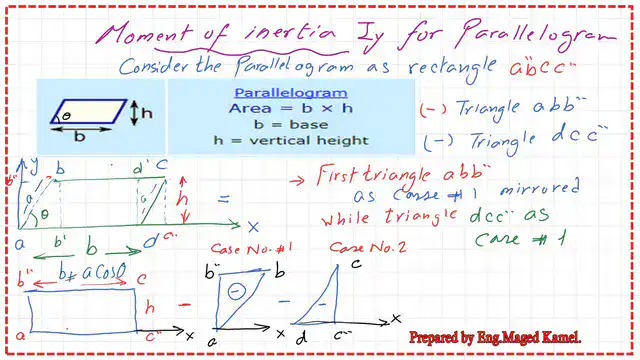 Moment of inertia Iy for Parallelogram
Consider the Parallelogram as rectangle ab"cc"
Parallelogram
Area = b × h
b = base
h = vertical height
θ
h
b
(-) Triangle abb"
(-) Triangle dcc"
y
b"
b
d'
c
a
a
h
θ
=
x
a
b'
b
d
→ First triangle abb"
as Casse #1 mirrored
while triangle dcc" as
Case #1
Case No. #1
Case No. 2
b"
b + a cosθ
c
h
a
c"
x
-
b"
b
-
a
x
-
c
-
d
c"
x
Prepared by Eng.Maged Kamel.